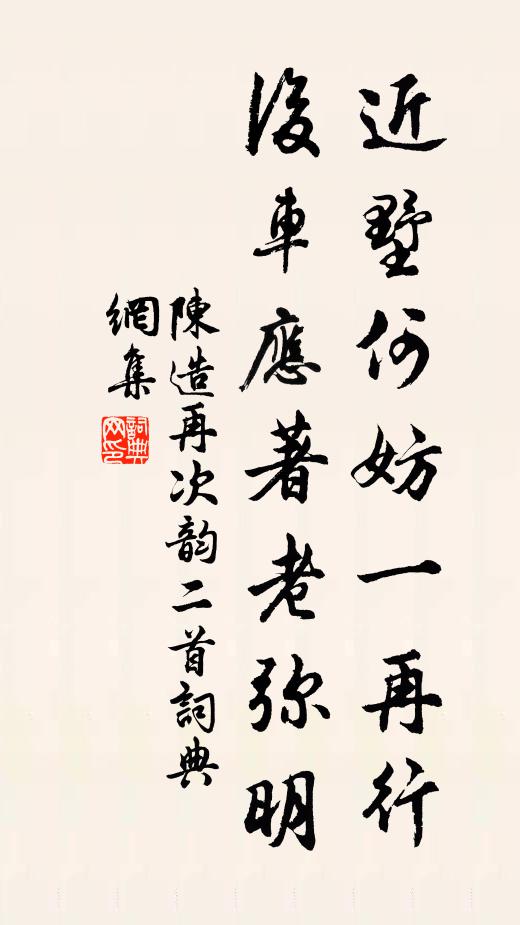 近墅何妨一再行
後車應著老弥明
陳造再次韵二首詞典
網集
詞典
网印